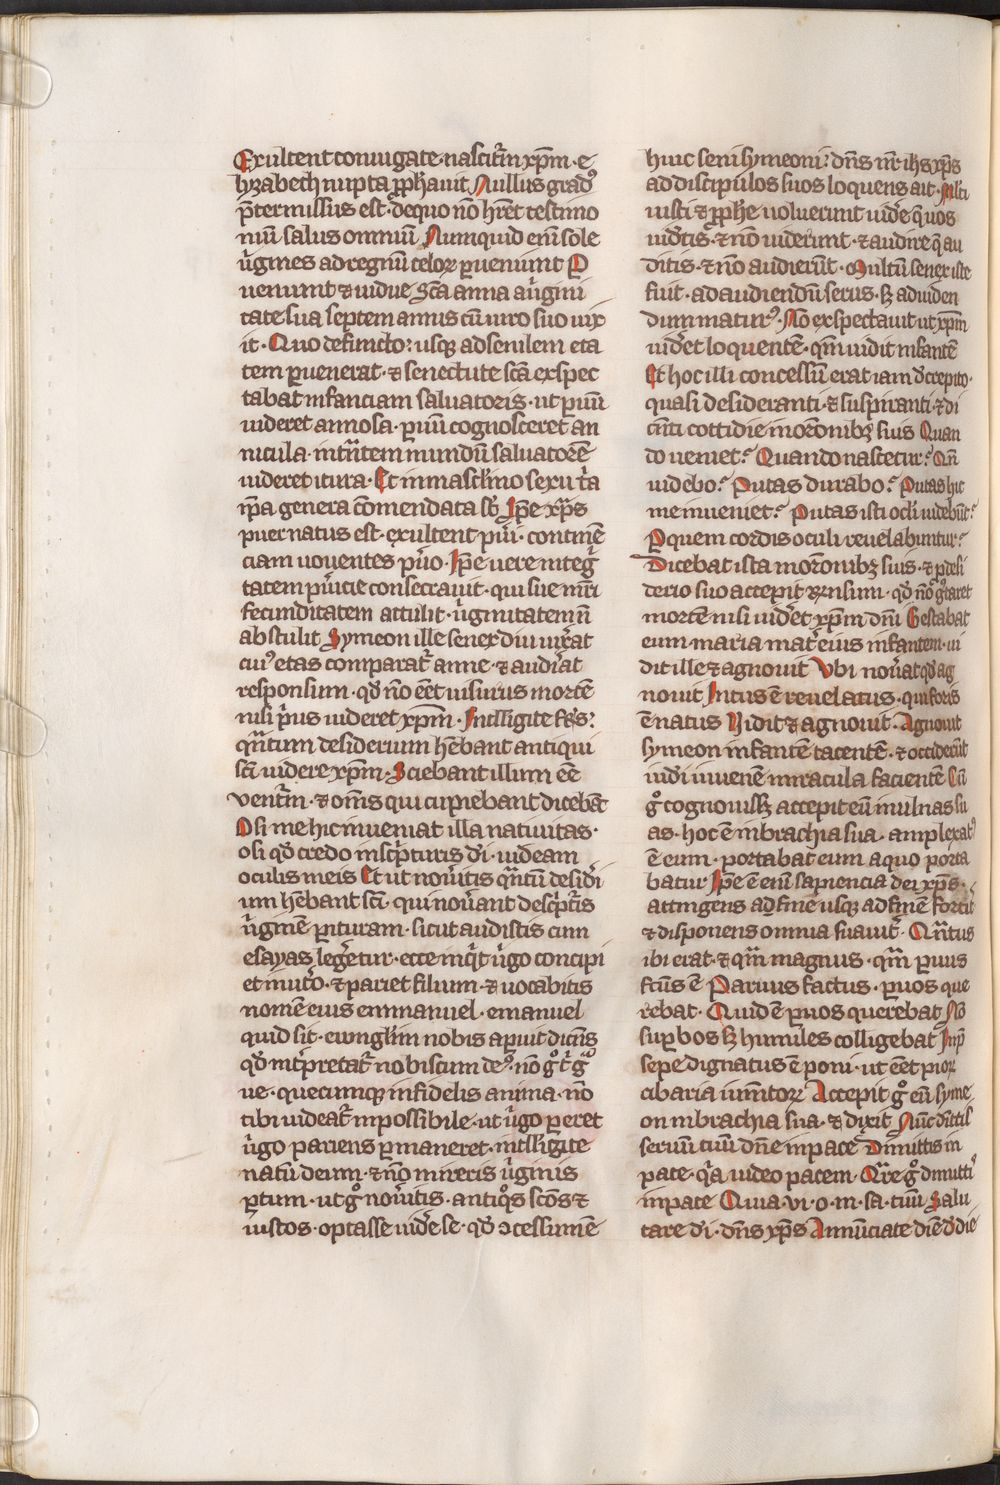 Exultent coniugate · nascit᷑ in xp̄m · e
lyzabech nupta ꝓphauit Nullus gradꝰ
p̄termissus est · de quo nō hr̄et testimo
niū salus omniū Numquid enī sole
ũgines ad regnū celoꝝ ꝑueniunt P
ueniunt ⁊ uidue Sc̄a anna a ũgini
tate sua septem annis cū uiro suo uix
it · Quo defuncto: usqꝫ ad senilem eta
tem ꝑuenerat · ⁊ senectute sc̄a exspec
tabat infanciam saluatoris · ut ꝑuū
uideret annosa · ꝑuū cognosceret an
nicula · int̃ntem mundū saluatorē
uideret itura · Et in masclino sexu t̃a
ip̄a genera cōmendata st̄ Ip̄e xp̄s
puer natus est · exultent pũi · continē
ciam uouentes pũo · Ip̄e uere integ̃
tatem pũicie consecrauit · qui sue mr̄i
fecunditatem attulit · ũginitatem n̄
abstulit Symeon ille senex diu uix̃at
cuiꝰ etas comparat᷑ anne · ⁊ audĩat
responsum · qd̄ nō eēt uisurus mortē
nisi p̃us uideret xp̄m · Intelligite fr̄s:
qñtum desiderium hēbant antiqui
sc̄i uidere xp̄m · Sciebant illum eē
ventr̄m · ⁊ om̄s qui cupiebant dicebāt
O si me hic inueniat illa natiuitas ·
o si qd̄ credo in sc̃pturis dī · uideam
oculis meis Et ut noũitis qñtū desid̃i
um hēbant sc̄i · qui noũant de sc̃pt̃is
ũginē ꝑituram · sicut audistis cum
esayas leg̃etur · ecce inq̃t ũgo concipi
et in ut̃o · ⁊ pariet filium · ⁊ uocabitis
nomē eius emmanuel · emanuel
quid sit · ewnglīm nobis aꝑuit dicēns
qd̄ int̃pretat᷑ nobiscum deꝰ · nō g° t᷑ g̃
ue · quecumqꝫ infidelis anima · nō
tibi uideat᷑ inpossibile · ut ũgo ꝑeret
ũgo pariens ꝑmaneret · intelligite
natū deum · ⁊ nō mireris ũginis
ꝑtum · ut g° noũitis · antiq°s sc̄os ⁊
iustos · optasse uid̃e se · qd̄ ↄcessum ē
huic seni symeoni: dn̄s nr̄ ih̄s xp̄s
ad discipulos suos loquens ait · Mlti
iusti ⁊ ꝓphe uoluerunt uid̃e q̄ uos
uid̃tis · ⁊ nō uiderunt · ⁊ audire q̄ au
ditis · ⁊ nō audierūt · Multū senex iste
fuit · ad audiendū serus · sꝫ ad uiden
dum maturꝰ · Nō exspectauit ut xp̄m
uid̃et loquentē · qm̄ uidit infantē
Et hoc illi concessū erat iam d̃crepito ·
quasi desideranti · ⁊ suspiranti · ⁊ di
c̄nti cottidie in or̄onibꝫ suis Quan
do ueniet? Quando nascetur? Qn̄
uidebo? Putas durabo? Putas hic
me inueniet? Putas isti oc̄li uidebūt?
Ꝑ quem cordis oculi reuelabuntur?
Dicebat ista in or̄onibꝫ suis · ⁊ ꝑ desi
derio suo accepit rñsum · qd̄ nō g°taret
mortē nisi uid̃et xp̄m dn̄i Gestabat
eum maria mat̃ eius infantem · ui
dit ille ⁊ agnouit Vbi noũat qd̄ ag
nouit Intus ē reuelatus · qui foris
ē natus Vidit ⁊ agnouit · Agnouit
symeon infantē tacentē · ⁊ occiderūt
iudī iuuenē miracula facientē Cū
g° cognouissꝫ accepit eū in ulnas su
as · hoc ē in brachia sua · amplexatꝰ
ē eum · portabat eum a quo porta
batur Ip̄e ē enī sapiencia dei xp̄s ·
attingens ad finē usqꝫ ad finē fortit̃
⁊ disponens omnia suauit̃ · Qñtus
ibi erat · ⁊ qm̄ magnus · qm̄ ꝑuus
fc̄us ē Paruus factus · ꝑuos que
rebat · Quid ē ꝑuos querebat Nō
suꝑbos sꝫ humiles colligebat In p̄
sepe dignatus ē poni · ut eēt pioꝝ
cibaria iumtoꝝ Accepit g° eū syme
on in brachia sua · ⁊ dixit Nūc dimittis
seruū tuū dn̄e in pace Dimittis in
pace · q̃a uideo pacem · Qr̄e g° dimittiꝰ
in pace Quia · vi · o · m · sa · tuū Salu
tare dī · dn̄s xp̄s Annūciate diē d̃ die